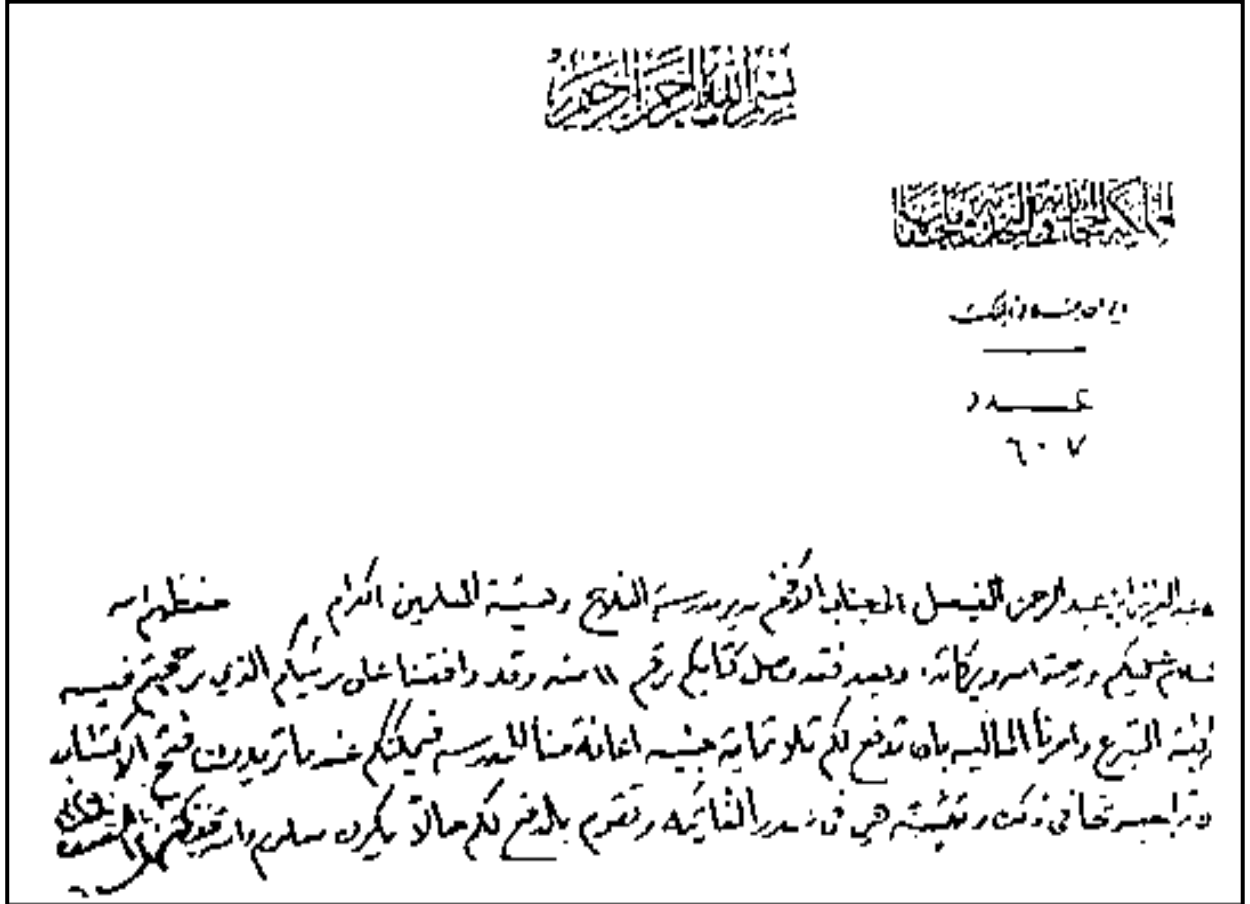 بسم الله الرحمن الرحيم
المملكة الحجازية النجدية وملحقاتها
ديوان جلالة الملك
عدد
٦٠٧
عبد العزيز ابن عبد الرحمن الفيصل الى جناب الافخم مدير مدرسة الفلاح وهيئة المعلمين الكرام حفظهم الله
سلام عليكم ورحمة الله وبركاته. وبعد فقد وصل كتابكم رقم ١١ منه وقد وافقنا على رئيكم الذي رجحتم فيه
التبرع وامرنا الماليه بان تدفع لكم ثلاثماية جنيه اعانة منا للمدرسه فيمكنكم عندما تريدون فتح الاكتتاب
في ذلك هي في صدر القائمه وتقوم بالدفع لكم حالاً يكون معلوم